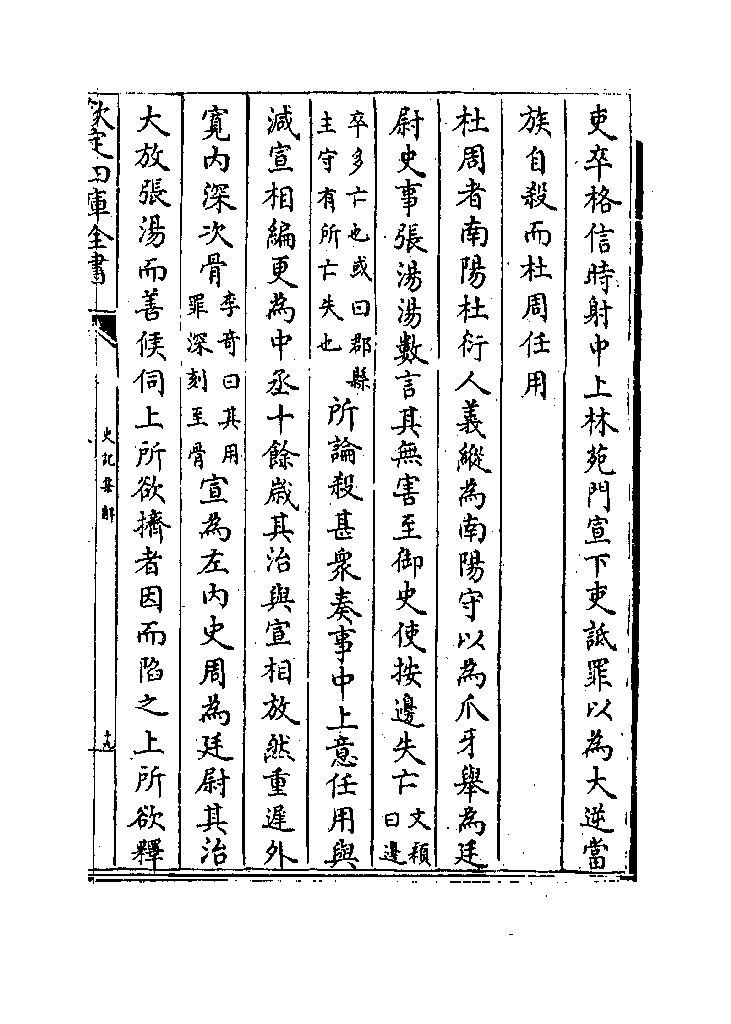 吏卒格信時射中上林苑門宣下吏詆罪以為大逆當
族自殺而杜周任用
杜周者南陽杜衍人義縱為南陽守以為爪牙舉為廷
尉史事張湯湯數言其無害至御史使按邊失亡文穎曰邊
卒多亡也或曰郡縣主守有所亡失也所論殺甚衆奏事中上意任用與
減宣相編更為中丞十餘歳其治與宣相放然重遲外
寛内深次骨李奇曰其用罪深刻至骨宣為左内史周為廷尉其治
大放張湯而善候伺上所欲擠者因而陷之上所欲釋
欽定四庫全書
史記集解
十九